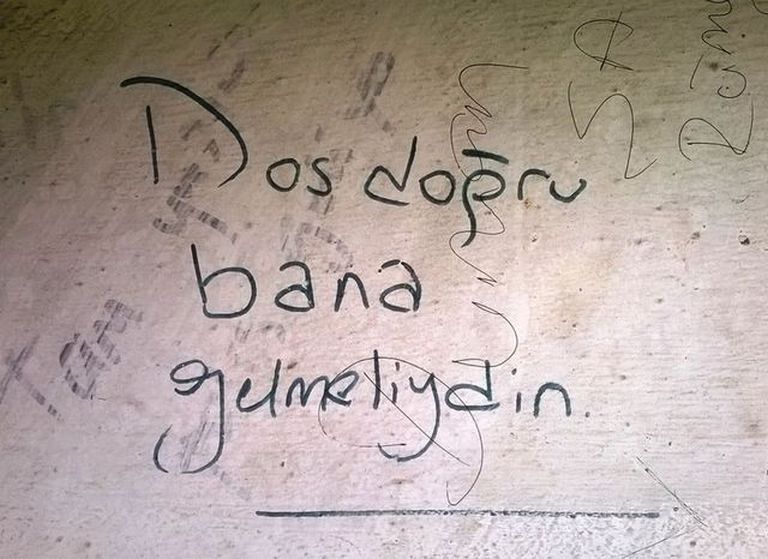 Dosdoğru
bana
gelmeliydin.